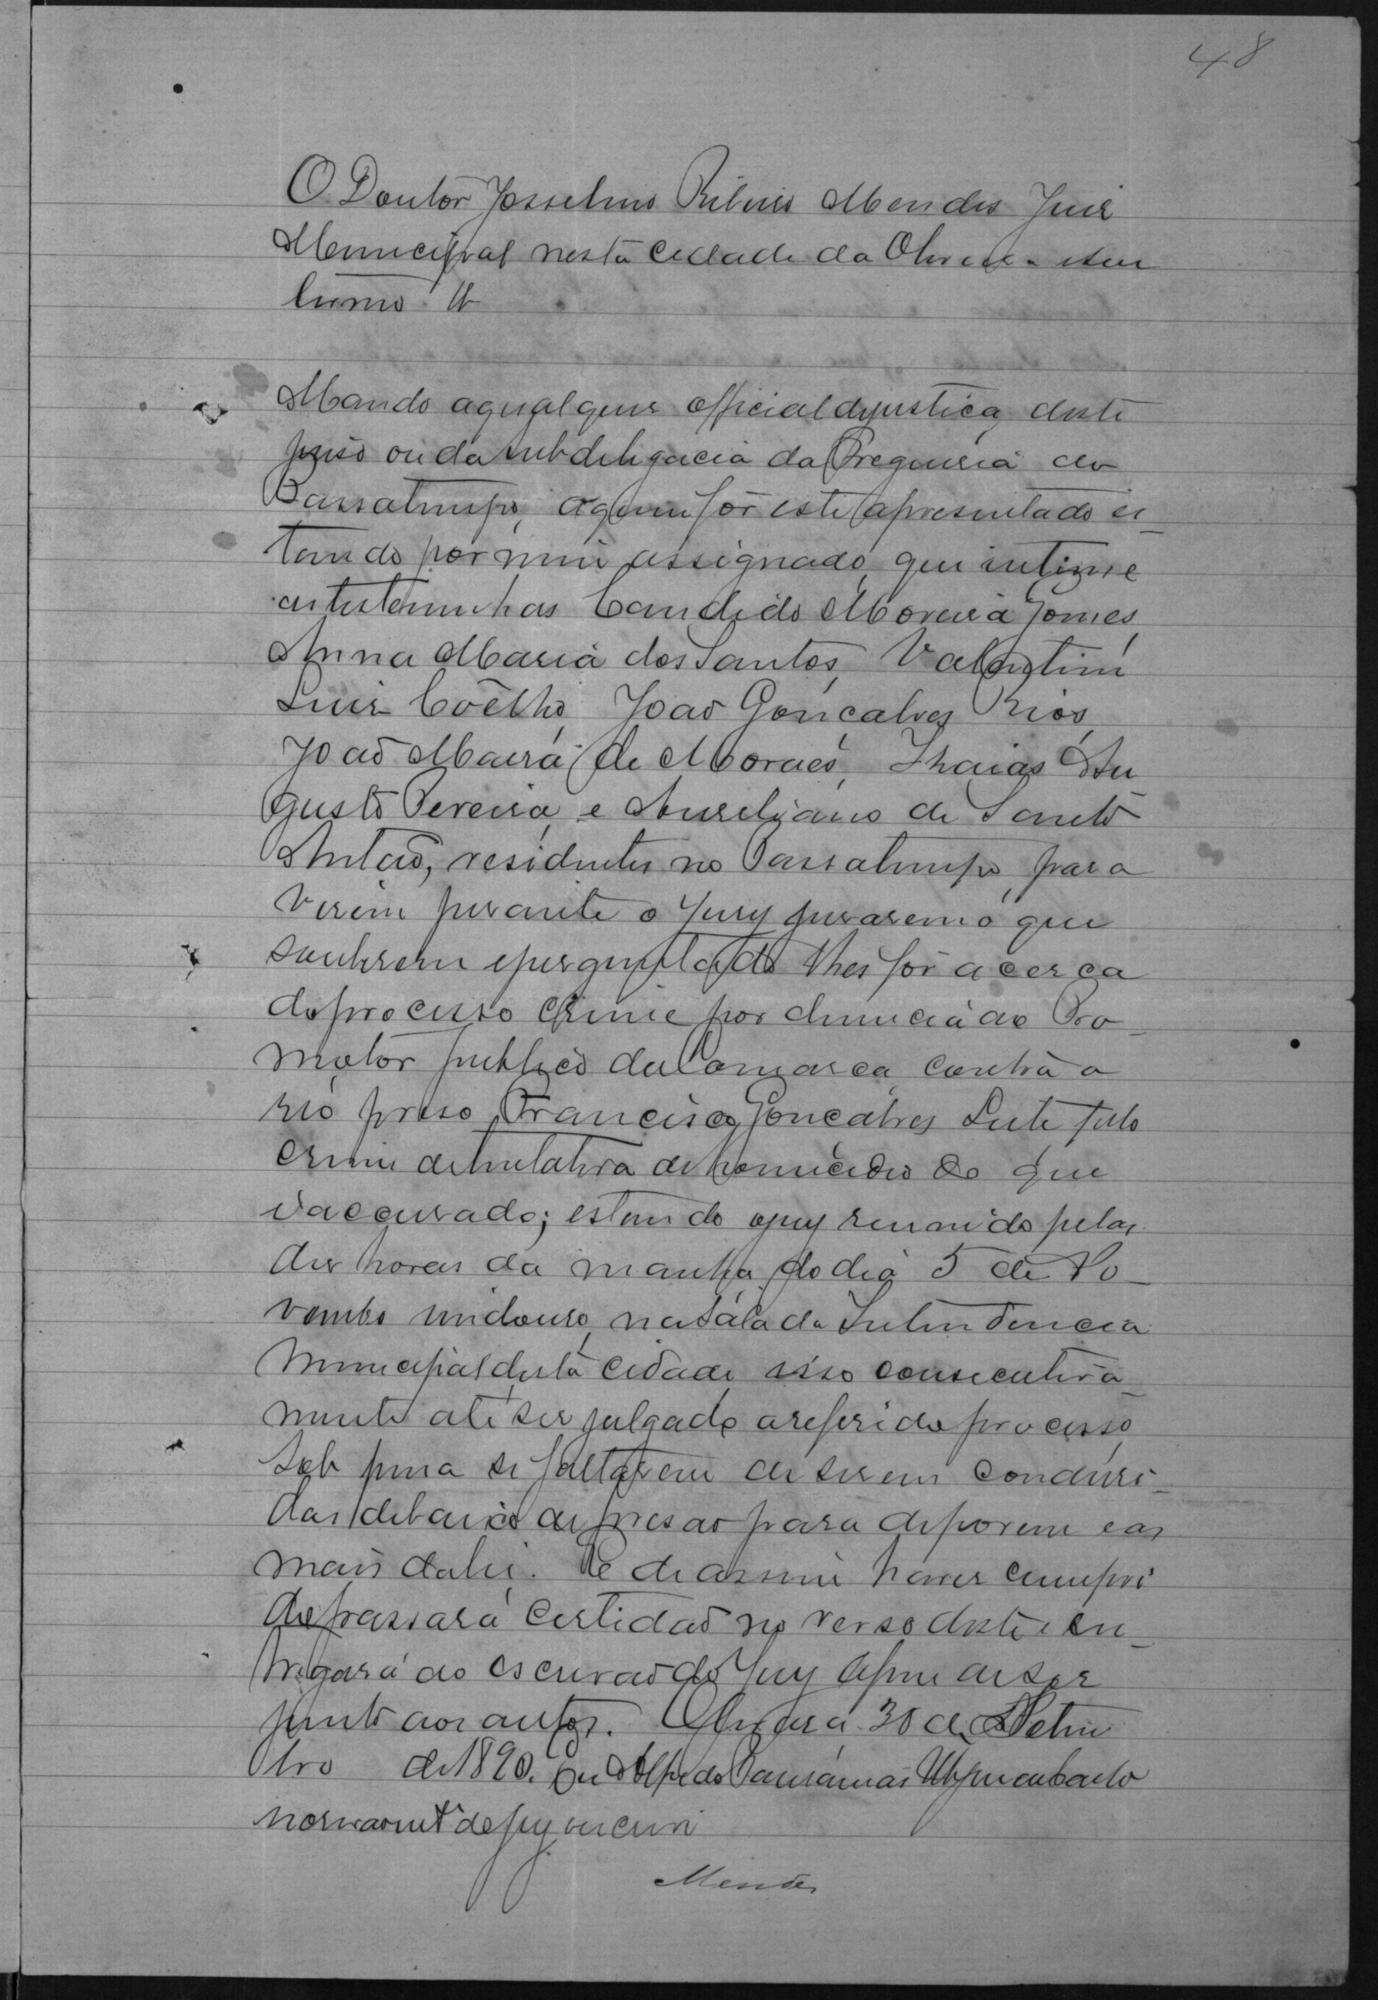 48
O Doutor Josselino Ribeiro Mendes Juiz
Municipal nesta cidade da Oliveira e seu
termo &
Mando a qualquer official de justiça deste
juiso ou da subdelegacia da Freguesia do
Passatempo, a quem fôr este apresentado es-
tando por mim assignado, que intime
as testemunhas Candido Moreira Gomes,
Anna Maria dos Santos, Valentim
Luis Coêlho, João Gonçalves Rios,
João Maria de Moraes, Izaias Au
gusto Pereira, e Aureliano de Santo
Antão, residentes no Passatempo, para
virem perante o Jury jurarem o que
souberem e perguntado lhes fôr acerca
do processo crime por denuncia do Pro-
motor publico da Comarca, contra o
réo preso Francisco Gonçalves Leite pelo
crime de tentativa de homicidio de que
é accusado; estando o jury reunido pelas
des horas da manhã do dia 5 de No-
vembro vindouro, na sala da Intendencia
Municipal desta cidade, isso consecutiva-
mente até ser julgado o referido processo,
sob pena se faltarem de serem condusi-
das debaixo de prisão para deporem e as
mais da lei. E de assim haver cumpri
do passará certidão no verso deste e en-
tregará ao escrivão do Jury afim de ser
junto aos autos. Oliveira 30 de Setem
bro de 1890. Eu Alfredo
escrivão do jury escrevi
Mendes